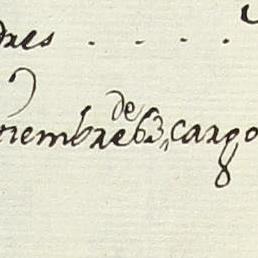 dres . . . . .
tiembre de 63, cargo